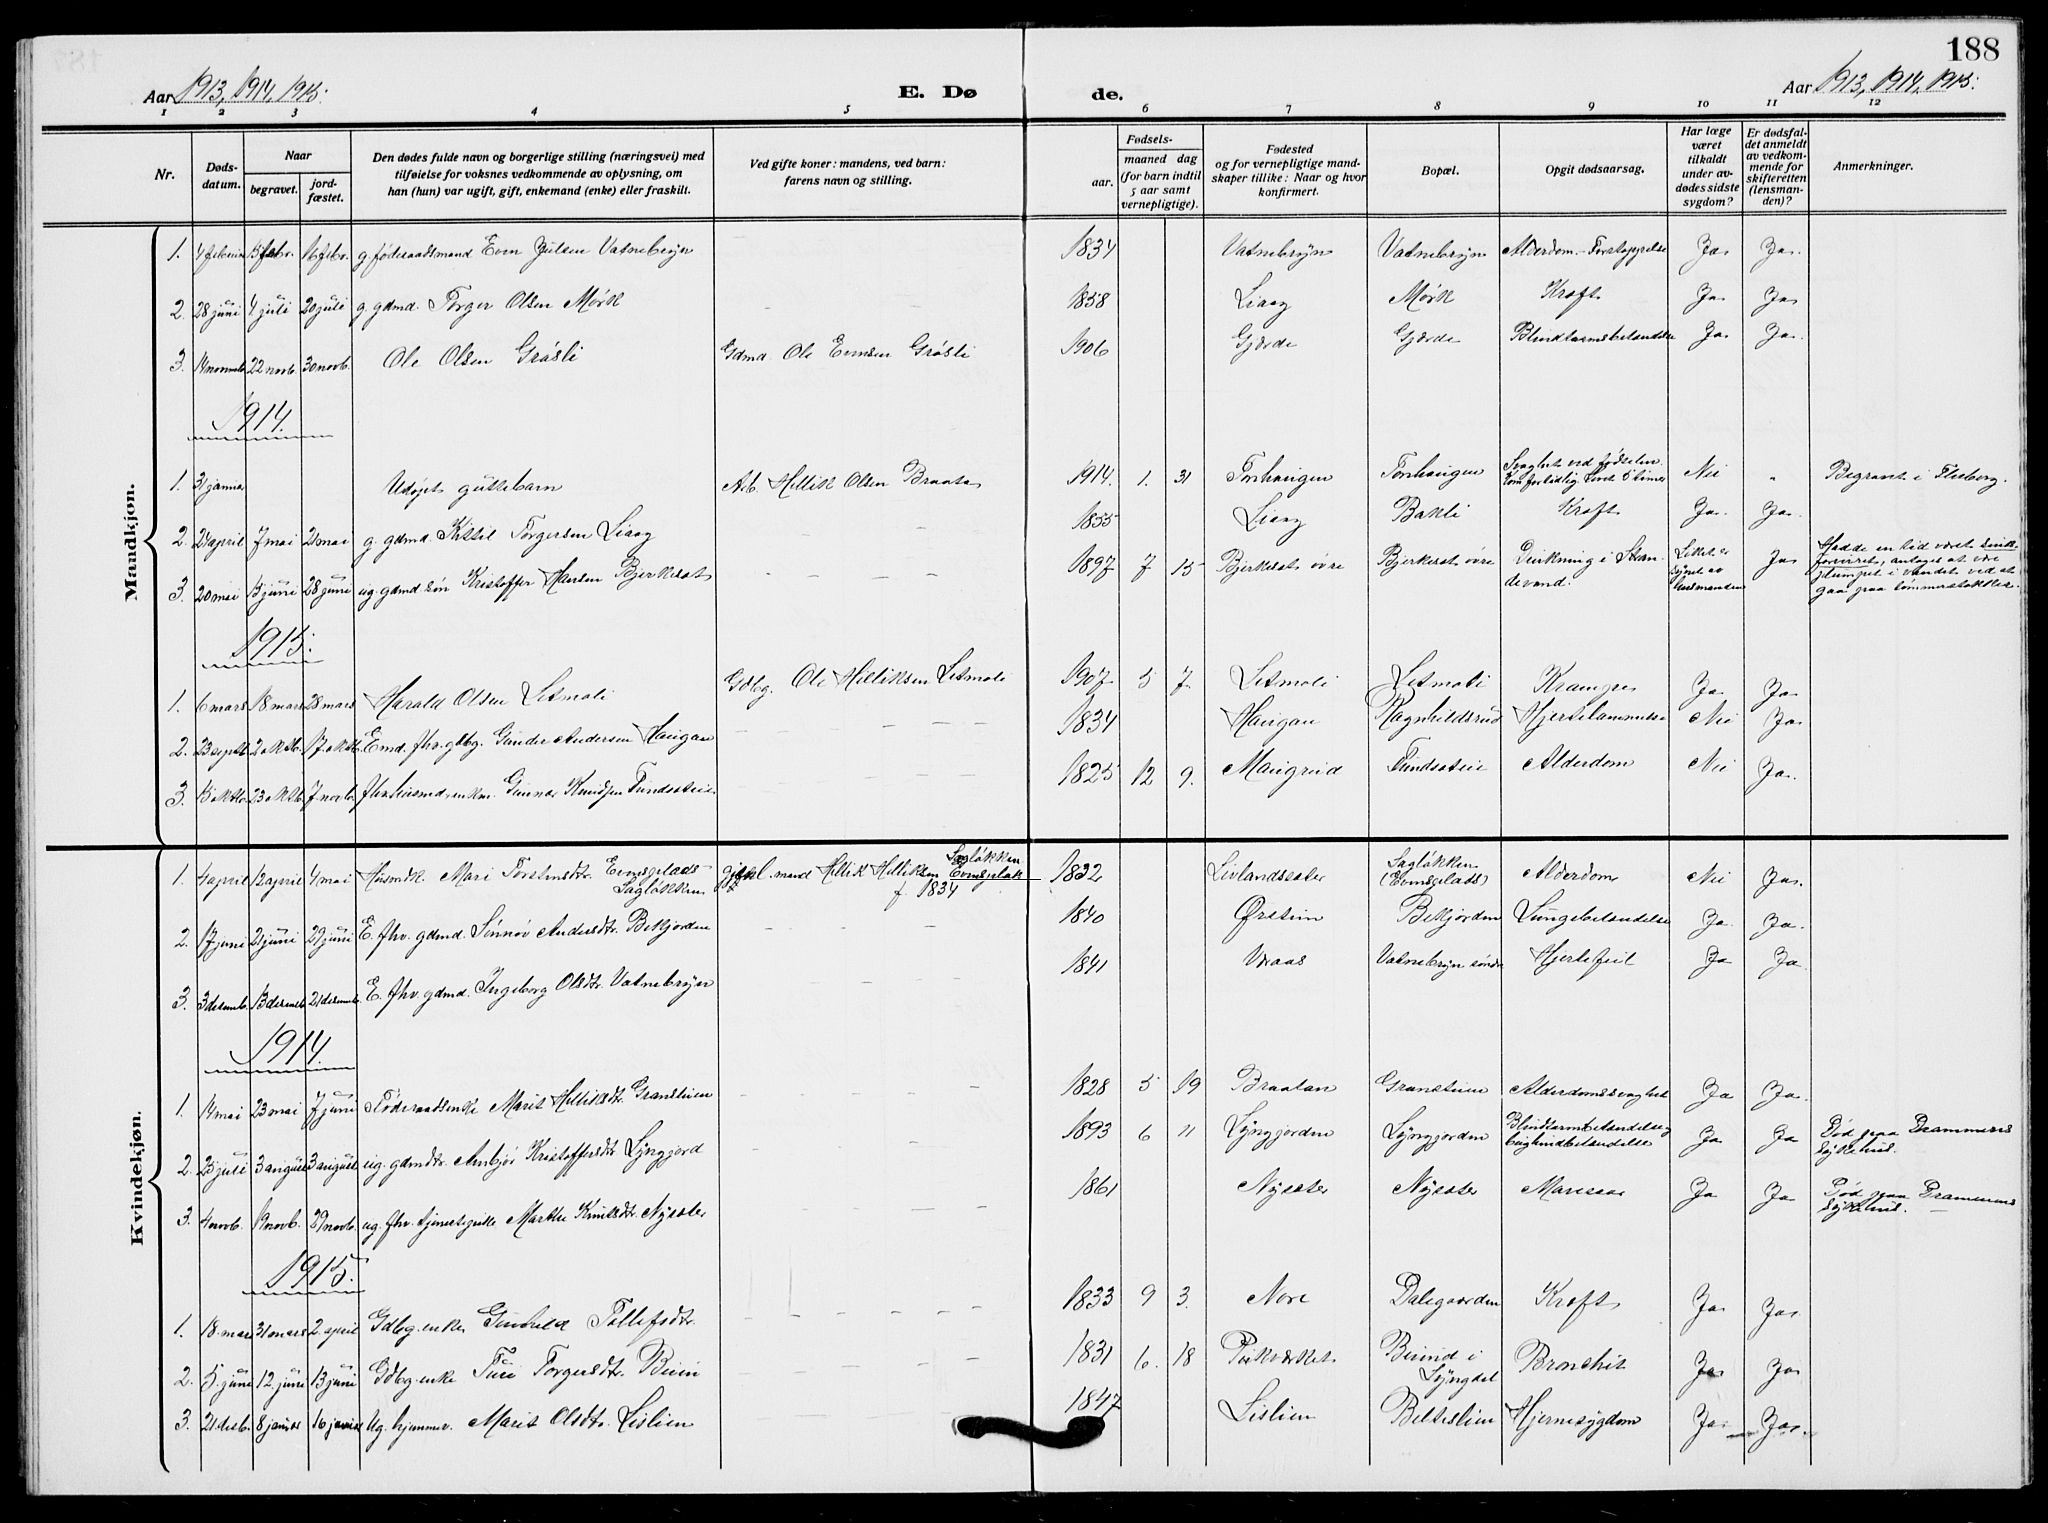 188
Aar 1913, 1914, 1915.
E. Dø
de.
Aar 1913, 1914, 1915.
1 2 3 4 5 6 7 8 9 10 11 12
Nr.
Døds-
datum.
Naar
begravet.
jord-
fæstet.
Den dødes fulde navn og borgerlige stilling (næringsvei) med
tilføielse for voksnes vedkommende av oplysning, om
han (hun) var ugift, gift, enkemand (enke) eller fraskilt.
Ved gifte koner: mandens, ved barn:
farens navn og stilling.
Fødsels-
aar.
maaned dag
(for barn indtil
5 aar samt
vernepligtige).
Fødested
og for vernepligtige mand-
skaper tillike: Naar og hvor
konfirmert.
Bopæl.
Opgit dødsaarsag.
Har læge
været
tilkaldt
under av-
dødes sidste
sygdom?
Er dødsfal-
det anmeldt
av vedkom-
mende for
skifteretten
(lensman-
den)?
Anmerkninger.
Mandkjøn.
1. 4 februar 15 febr. 16 febr. g. føderaadsmand Even Juelsen Vatnebryn 1834 Vatnebryn Vatnebryn Alderdom - Forstoppelse Ja Ja.
2. 28 juni 4 juli 20 juli g. gdmd. Torger Olsen Mørk 1858 Liaag Mørk Kræft Ja Ja
3. 14 novemb. 22 novb. 30 novb. Ole Olsen Grøsli Gdmd. Ole Evensen Grøsli 1906 Gjærde Gjærde Blindtarmsbetændelse Ja Ja.
1914.
1. 31 januar Udøpt guttebarn Arb. Hellik Olsen Braata 1914. 1. 31 Torhaugen Torhaugen Svaghet ved fødselen. Kom for tidlig. Levet 5 timer Nei " Begravet i Flesberg.
2. 24 april 7 mai 21 mai g. gdmd. Kittil Torgersen Liaag 1855 Liaag Bakli Kræft Ja. Ja.
3. 20 mai 13 juni 28 juni ug. gdmd. søn Kristoffer Hansen Bjerkeset 1897 7 15 Bjerkeset øvre Bjerkeset øvre Drukning i Stran-
devand. Liket er
synet av
lensmanden Ja Hadde en tid været sinds-
forvirret, antages at være
plumpet i vandet ved at
gaa paa tømmerstokker.
1915.
1. 6 mars 18 mars 28 mars Harald Olsen Letmoli Gdbg. Ole Helliksen Letmoli 1907 5 7 Letmoli Letmoli Krampe Ja Ja
2. 23 septb. 2 oktb. 17 oktb. Emd. fhv. gdbg. Gunder Andersen Haugan 1834 Haugan Ragnhildsrud Hjertelammelse Nei Ja
3. 15 oktbr. 23 oktb. 7 novbr. fhv. husmd. enkm. Gunnar Knudsen Tundsteie 1825 12 9. Maigreid Tundsteie Alderdom Nei Ja.
Kvindekjøn.
1. 4 april 12 april 4 mai Husmdk. Mari Torstensdtr. Evensplads
Sagløkken gift l. mand Hellik Helliksen Evensplads
Sagløkken
f. 1834 1832 Livlandsæter Sagløkken
(Evensplads) Alderdom Nei Ja.
2. 17 juni 21 juni 29 juni E. fhv. gdmd. Sønnøv Andersdtr. Bekjorden 1840 Ørstein Bekjorden Lungebetændelse Ja Ja.
3. 3 decemb. 13 decemb. 21 decemb. E. fhv. gdmd. Ingeborg Olsdtr. Vatnebryn 1841 Vraas Vatnebryn søndre Hjertefeil Ja Ja
1914.
1. 14 mai 23 mai 7 juni Føderaadsenke Marit Helliksdtr. Granstuen 1828 5 19 Braatan Granstuen Alderdomssvaghet Ja Ja.
2. 25 juli 3 august 3 august ug. gdmdtr. Anbjør Kristoffersdtr. Lyngjord 1893 6 11 Lyngjorden Lyngjorden Blindtarmbetændelse og
bughindbetændelse Ja Ja Død paa Drammens
sykehus.
3. 4 novb. 19 novb. 29 novb. ug. fhv. tjenestepike Marthe Knutsdtr. Nysæter 1861 Nysæter Nysæter Mavesaar Ja Ja Død paa Drammens
sykehus.
1915.
1. 18. mars 31 mars 2. april Gdbg. enke Gunhild Tollefsdtr. 1833 9 3. Nore Dalegaarden Kræft Ja Ja.
2. 5. juni 12. juni 13 juni Gdbg. enke Turi Torgersdtr. Bein 1831 6. 18 Pukverket Beind i
Lyngdal Bronchit Ja Ja
3. 21 desb. 8 januar 16 januar Ug. hjemmev. Marit Olsdtr. Lislien 1847 Lislien Beltislien Hjernesygdom Ja. Ja.